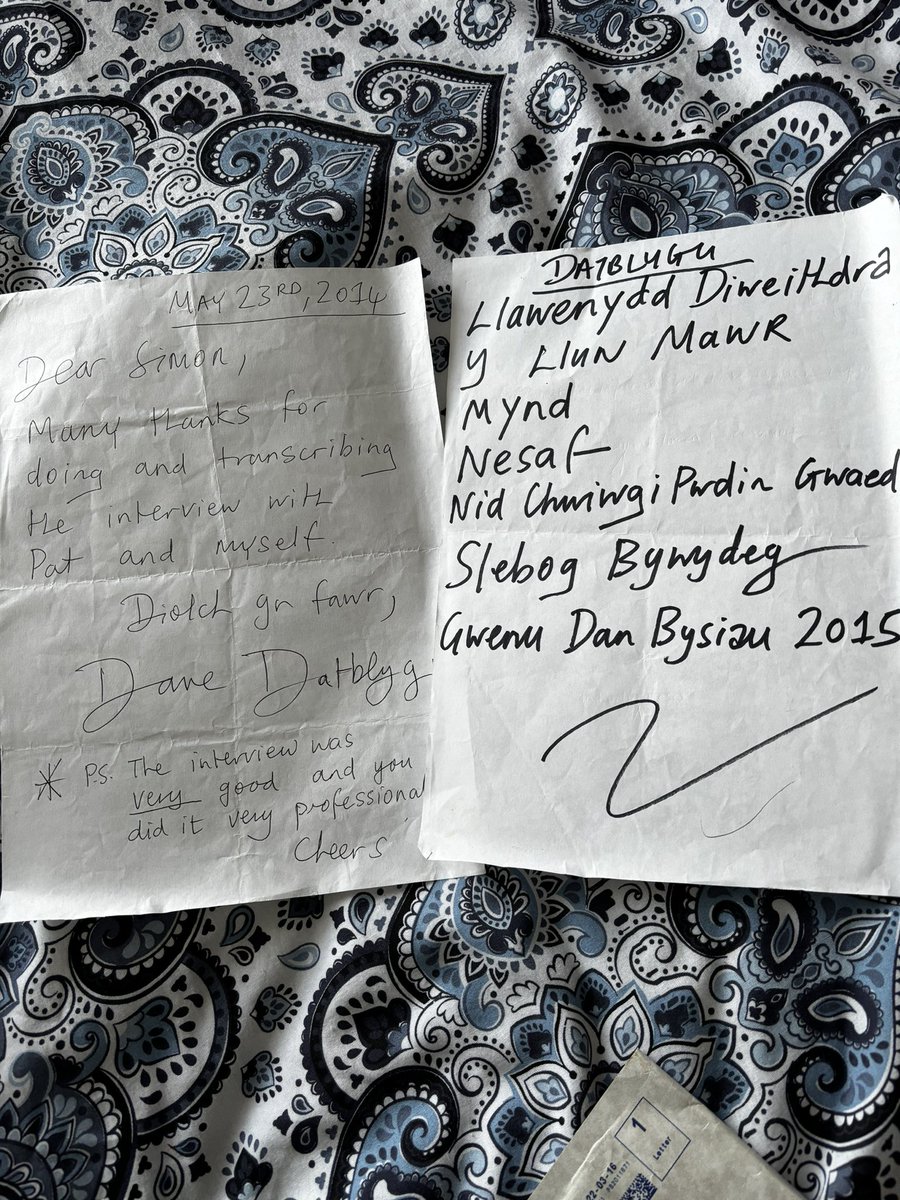 MAY 23RD, 2014
Dear Simon,
Many thanks for
doing and transcribing
the interview with
Pat and myself.
Diolch yn fawr,
Dave Datblyg
* P.S. The interview was
very good and you
did it very professional
Cheers
DATBLYGU
Llawenydd Diweithdra
Y Llun Mawr
Mynd
Nesaf
Nid Chwiwgi Pwdin Gwaed
Slebog Bywydeg
Gwenu Dan Bysiau 2015
1
Letter